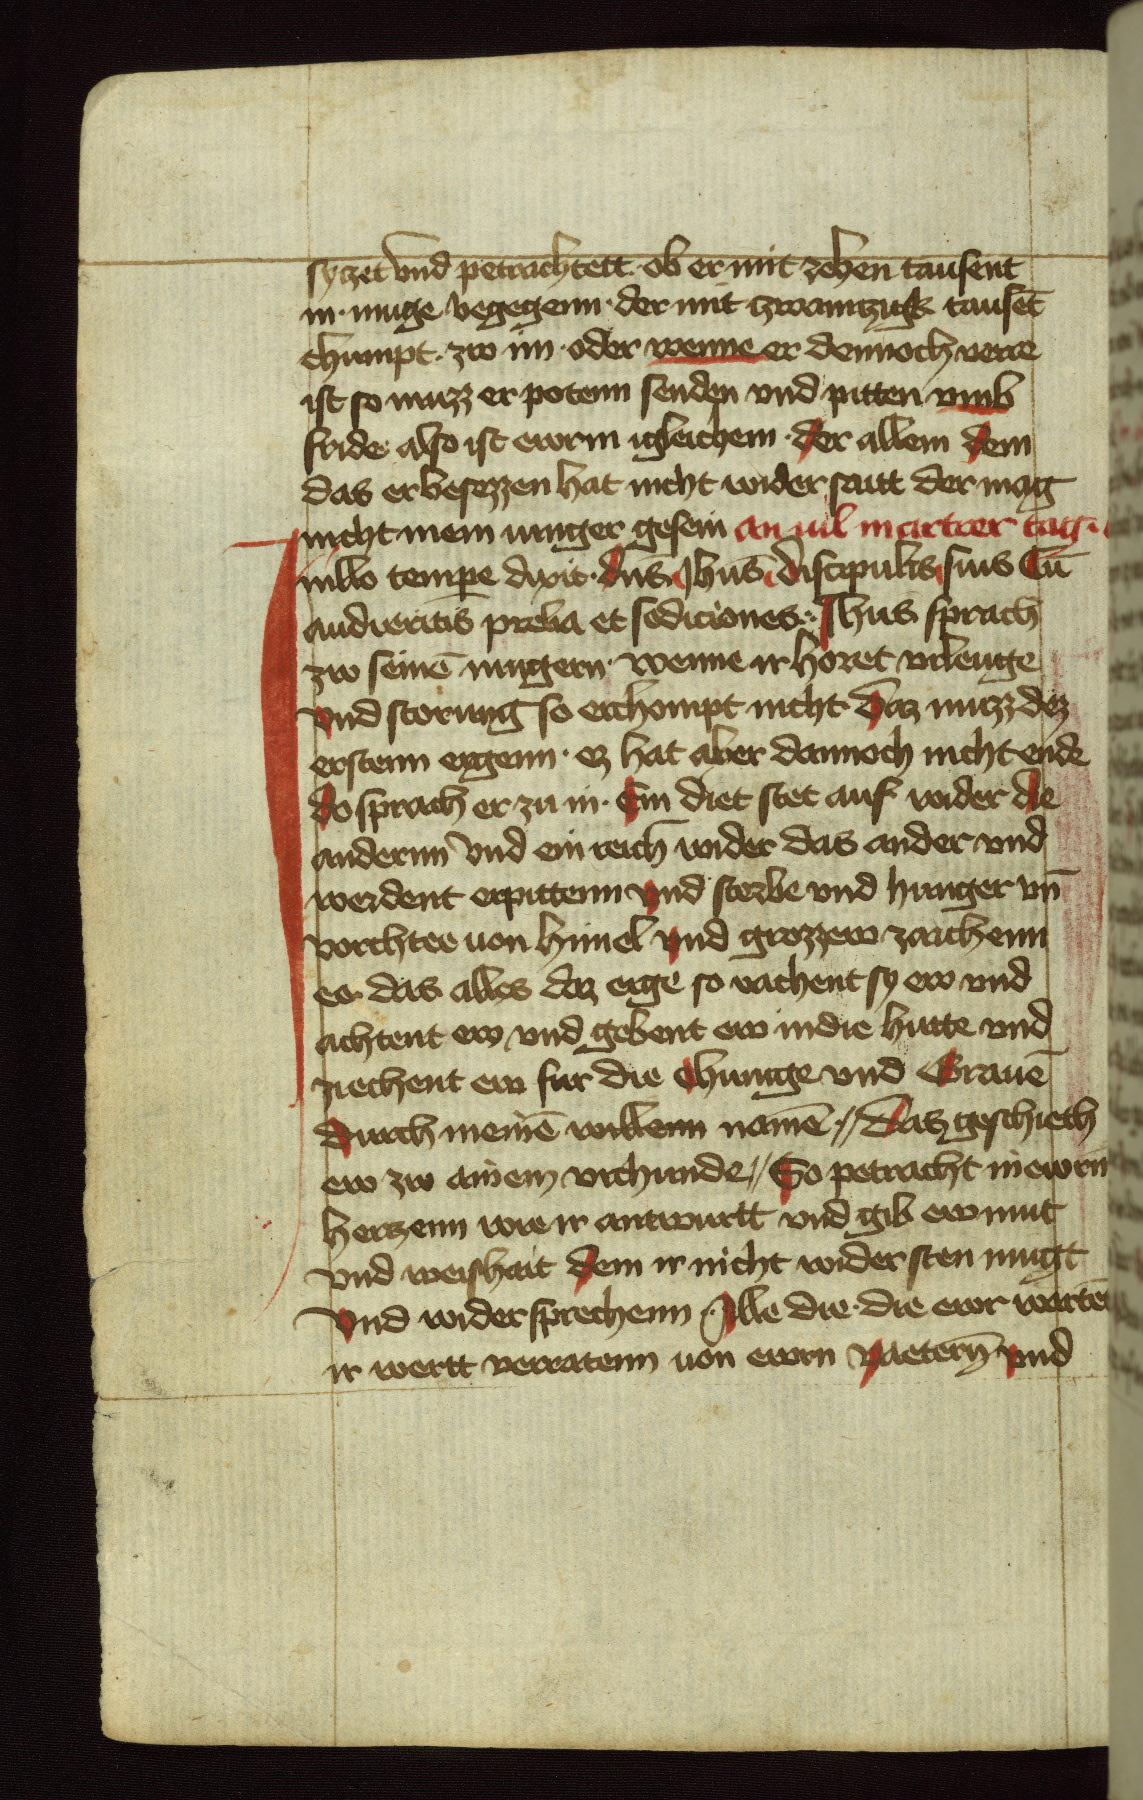 syzet vnd petrachtett · ob er mit zehen tausent
in · muge begegenn · der mit zwaintzigk tausēt
chumpt · zw im · oder wenne er dennoch verre
ist so muzz er potenn senden vnd pitten vmb
fride also ist ewrm igleichem · der allem dem
das er besezzen hat nicht wider sait der mag
nicht mein iunger gesein an uil martrer tag ·
In illo tempe dixit · dns Jhus discipulis suis Cū
audieritis prelia et sediciones · Jhus sprach
zw seinē iungern · wenne ir horet vrleuge
vnd storung so erchompt nicht daz muzz dez
erstenn ergenn · ez hat aber dannoch nicht ende
do sprach er zu in · Ein diet stet auf wider die
andernn vnd ein reich wider das ander vnd
werdent erpittenn vnd sterbe vnd hunger vn̄
vorchtee von himel vnd grozzew zaichenn
ee das alles daz erge so vachent sy ew vnd
achtent ew vnd gebent ew in die hutte vnd
ziechent ew fur die chunige vnd Grauē
durch meinē willenn namē // Daz geschiech
ew zw ainem vrchunde // So petracht in ewrn
herzenn wie ir antwurtt vnd gib ew mut
vnd weishait dem ir nicht wider sten mugt
vnd wider sprechenn Alle die · die ewr wartē
ir wertt verratenn uon ewrn vaetern̄ vnd